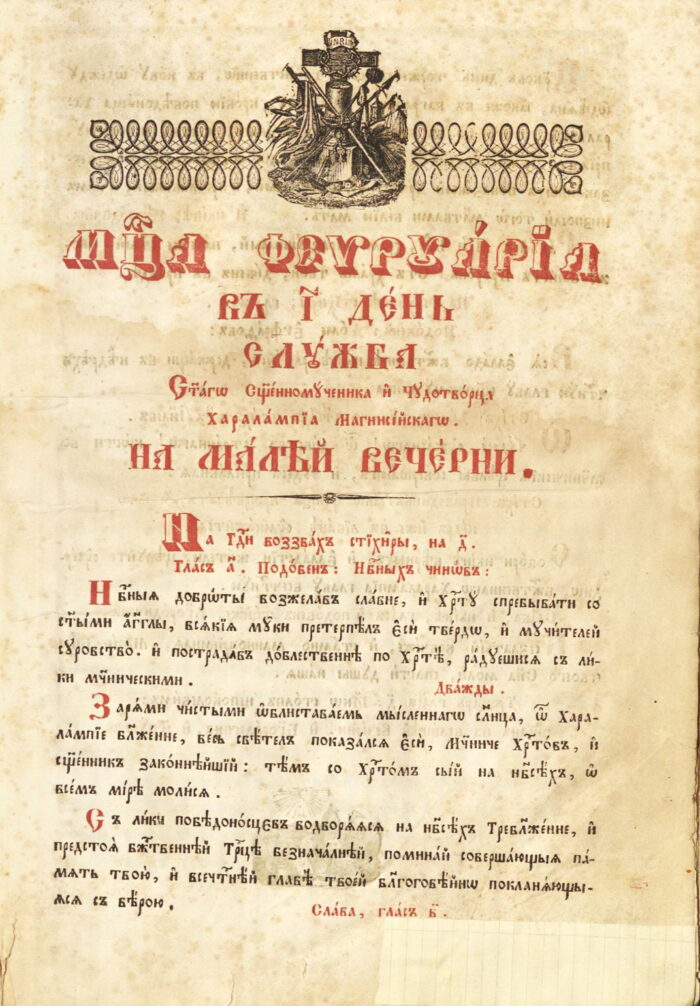 INRI
МЦ҃А ФЕѴРꙋА́РЇА
ВЪ І҃ ДЕ́НЬ
СЛꙋ́ЖБА
Ст҃а́гѡ Сщ҃е́нномꙋ́ченика и҆ Чꙋдотво́рца
Харала́мпїа Магнисі́йскагѡ.
НА МА́ЛѢЙ ВЕЧЕ́РНИ.
На Гдⷭ҇и воззва́хъ стїхи̑ры, на д҃.
Гла́съ а҃. Подо́бенъ: Нбⷭ҇ныхъ чинѡ́въ:
Нбⷭ҇ныѧ добрѡ́ты возжела́въ сла́вне, и҆ Хрⷭ҇тꙋ̀ спребыва́ти со
ст҃ы́ми а҆́гг҃лы, всѧ̑кїѧ мꙋ́ки претерпѣ́лъ є҆сѝ тве́рдѡ, и҆ мꙋчи́телей
сꙋро́вство. и҆ пострада́въ до́блественнѣ по Хрⷭ҇тѣ̀, ра́дꙋешисѧ съ ли́-
ки мч҃ническими.
Два́жды.
Зарѧ́ми чи́стыми ѡ҆блиста́ваемь мы́сленнагѡ сл҃нца, ѽ Хара-
ла́мпїе бл҃же́нне, ве́сь свѣ́телъ показа́лсѧ є҆сѝ, Мч҃ниче Хрⷭ҇то́въ, и҆
сщ҃е́нникъ зако́ннѣйшїй: тѣ́мъ со Хрⷭ҇то́мъ сы́й на нб҃сѣ́хъ, ѡ҆
все́мъ мі́рѣ моли́сѧ.
Съ ли́ки побѣдоно́сцєвъ водворѧ́ѧсѧ на нб҃сѣ́хъ Требл҃же́нне, и҆
предстоѧ̀ бжⷭ҇твеннѣй Трⷪ҇цѣ безнача́лнѣй, помина́й соверша́ющыѧ па́-
мѧть твою̀, и҆ всечⷭ҇тнѣ́й главѣ̀ твое́й бл҃гоговѣ́йнѡ покланѧ́ющы-
ѧсѧ съ вѣ́рою.
Сла́ва, гла́съ в҃.